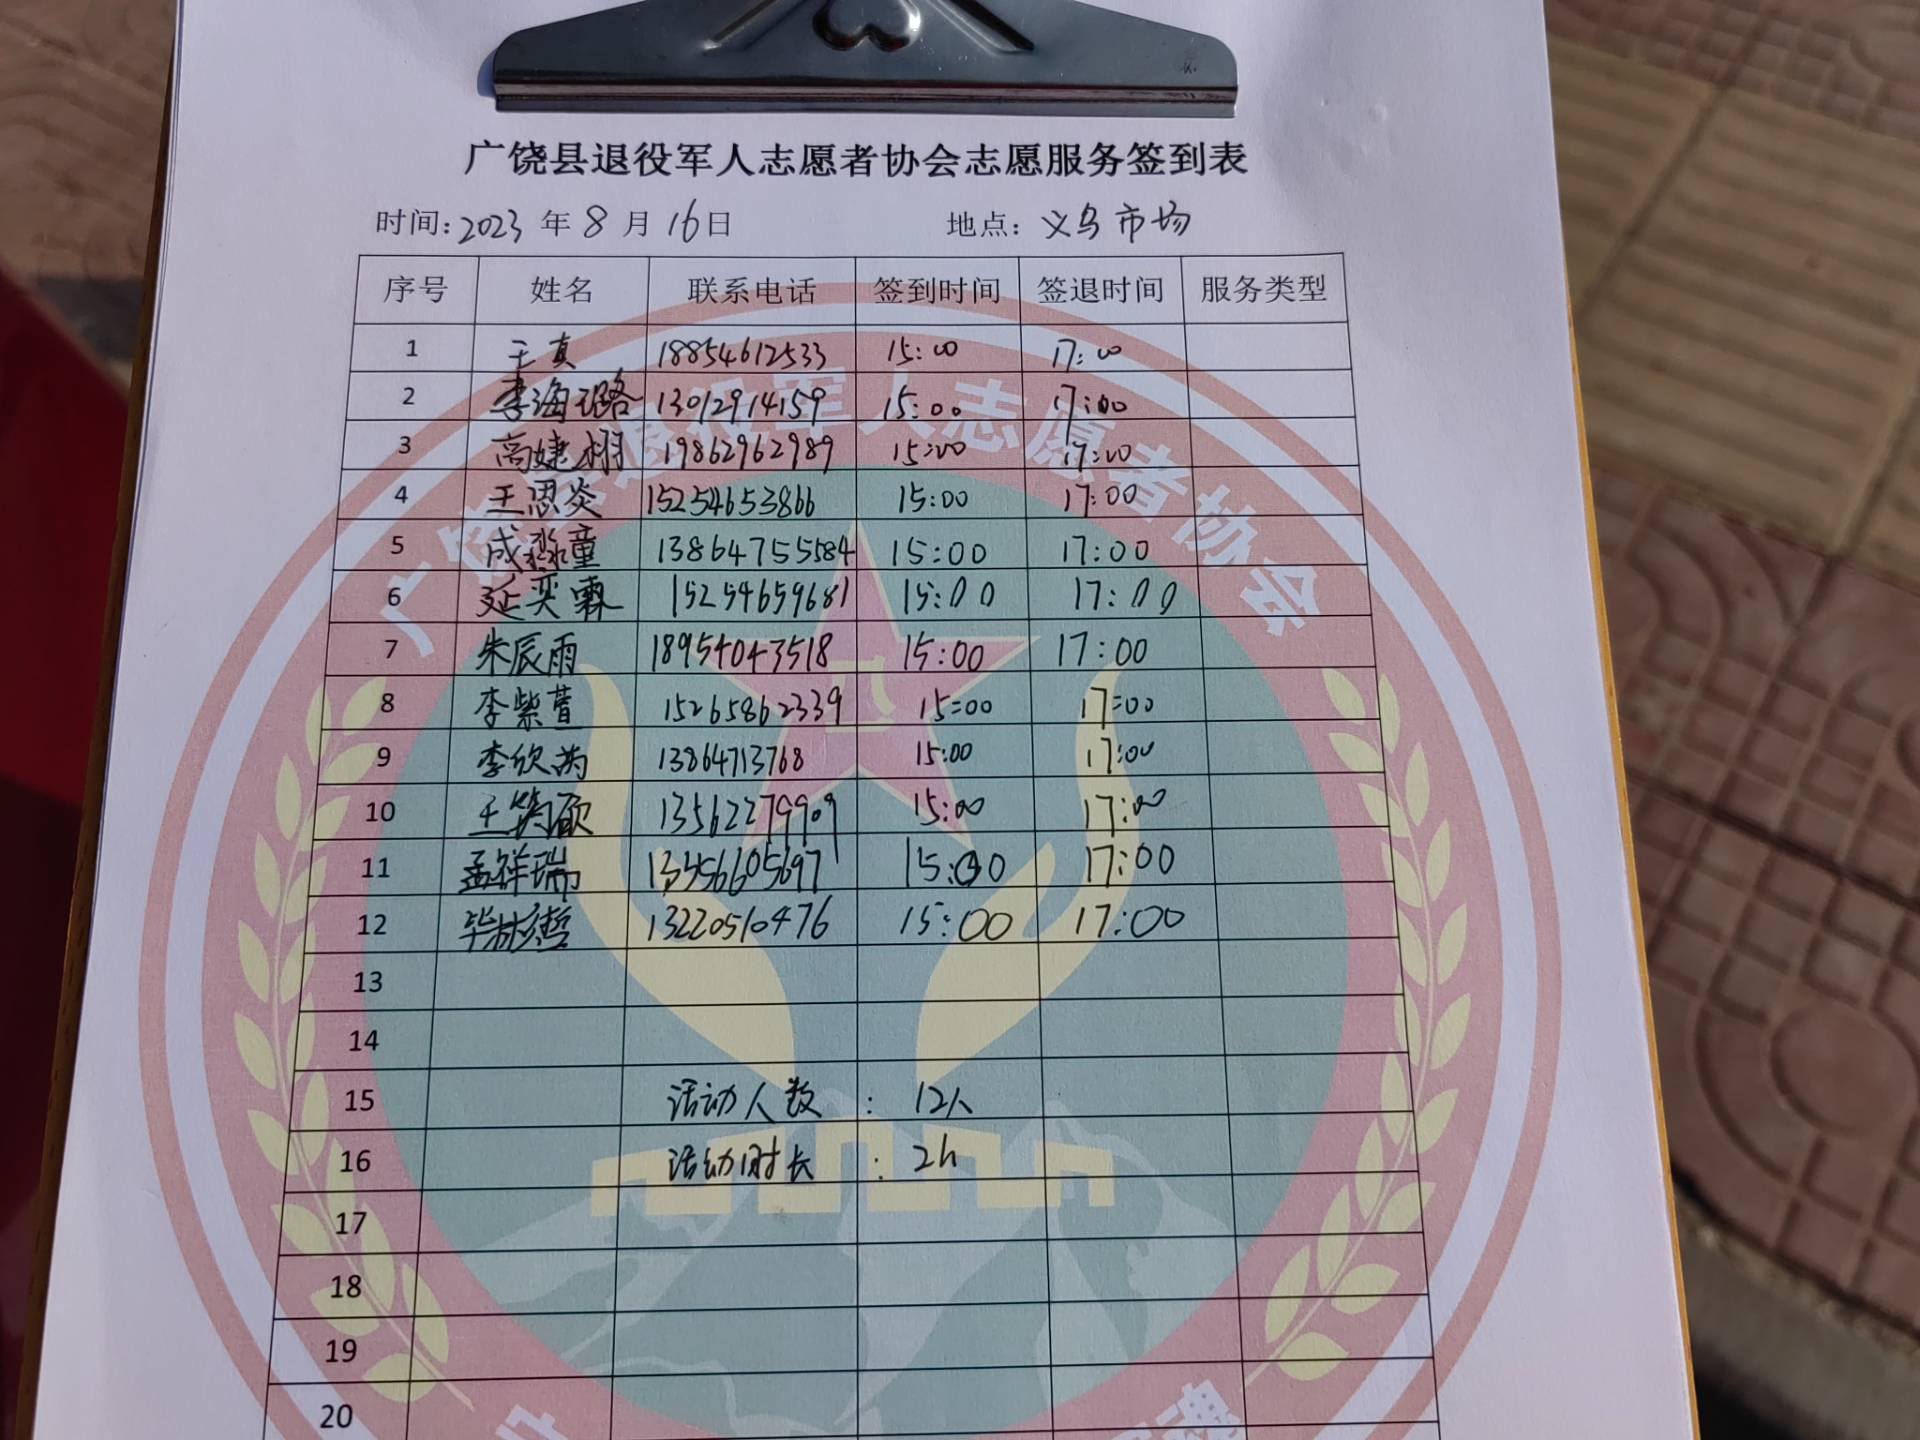 广饶县退役军人志愿者协会志愿服务签到表
时间: 2023 年 8 月 16 日 地点: 义乌市场
序号 姓名 联系电话 签到时间 签退时间 服务类型
1 王真 18854612533 15:00 17:00
2 李海璐 13012914159 15:00 17:00
3 高婕栩 19862962989 15:00 17:00
4 王思炎 15254653866 15:00 17:00
5 成淼童 13864755584 15:00 17:00
6 延奕霖 15254659681 15:00 17:00
7 朱辰雨 18954043518 15:00 17:00
8 李紫萱 15265862339 15:00 17:00
9 李欣芮 13864713768 15:00 17:00
10 王筠硕 13562279909 15:00 17:00
11 孟祥瑞 13456605697 15:00 17:00
12 毕彬哲 13220510476 15:00 17:00
13
14
15 活动人数 : 12人
16 活动时长 : 2h
17
18
19
20
广饶县退役军人志愿者协会